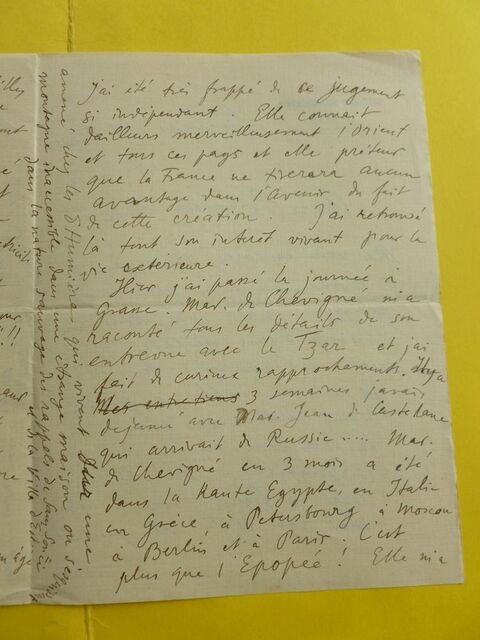 j'ai été très frappé de ce jugement
si indépendant. Elle connait
dailleurs merveilleusement l'Orient
et tous ces pays et elle prétend
que la France ne tirera aucun
avantage dans l'Avenir du fait
de cette création. J'ai retrouvé
là tout son interêt vivant pour la
vie extérieure.
Hier j'ai passé la journée à
Grasse. Mad. de Chevigné m'a
raconté tous les détails de son
entrevue avec le Tzar et j'ai
fait de curieux rapprochements. Il y a
3 semaines j'avais
dejeuné avec Mad. Jean de Castellane
qui arrivait de Russie..... Mad.
de Chevigné en 3 mois a été
dans la Haute Egypte, en Italie
en Grèce à Petersbourg à Moscou
à Berlin et à Paris. C'est
plus que l'Epopée! Elle m'a
amené chez les d'Humières qui vivent dans une
montagne inaccessible dans une étrange maison où
dans la nature sauvage des rappels de